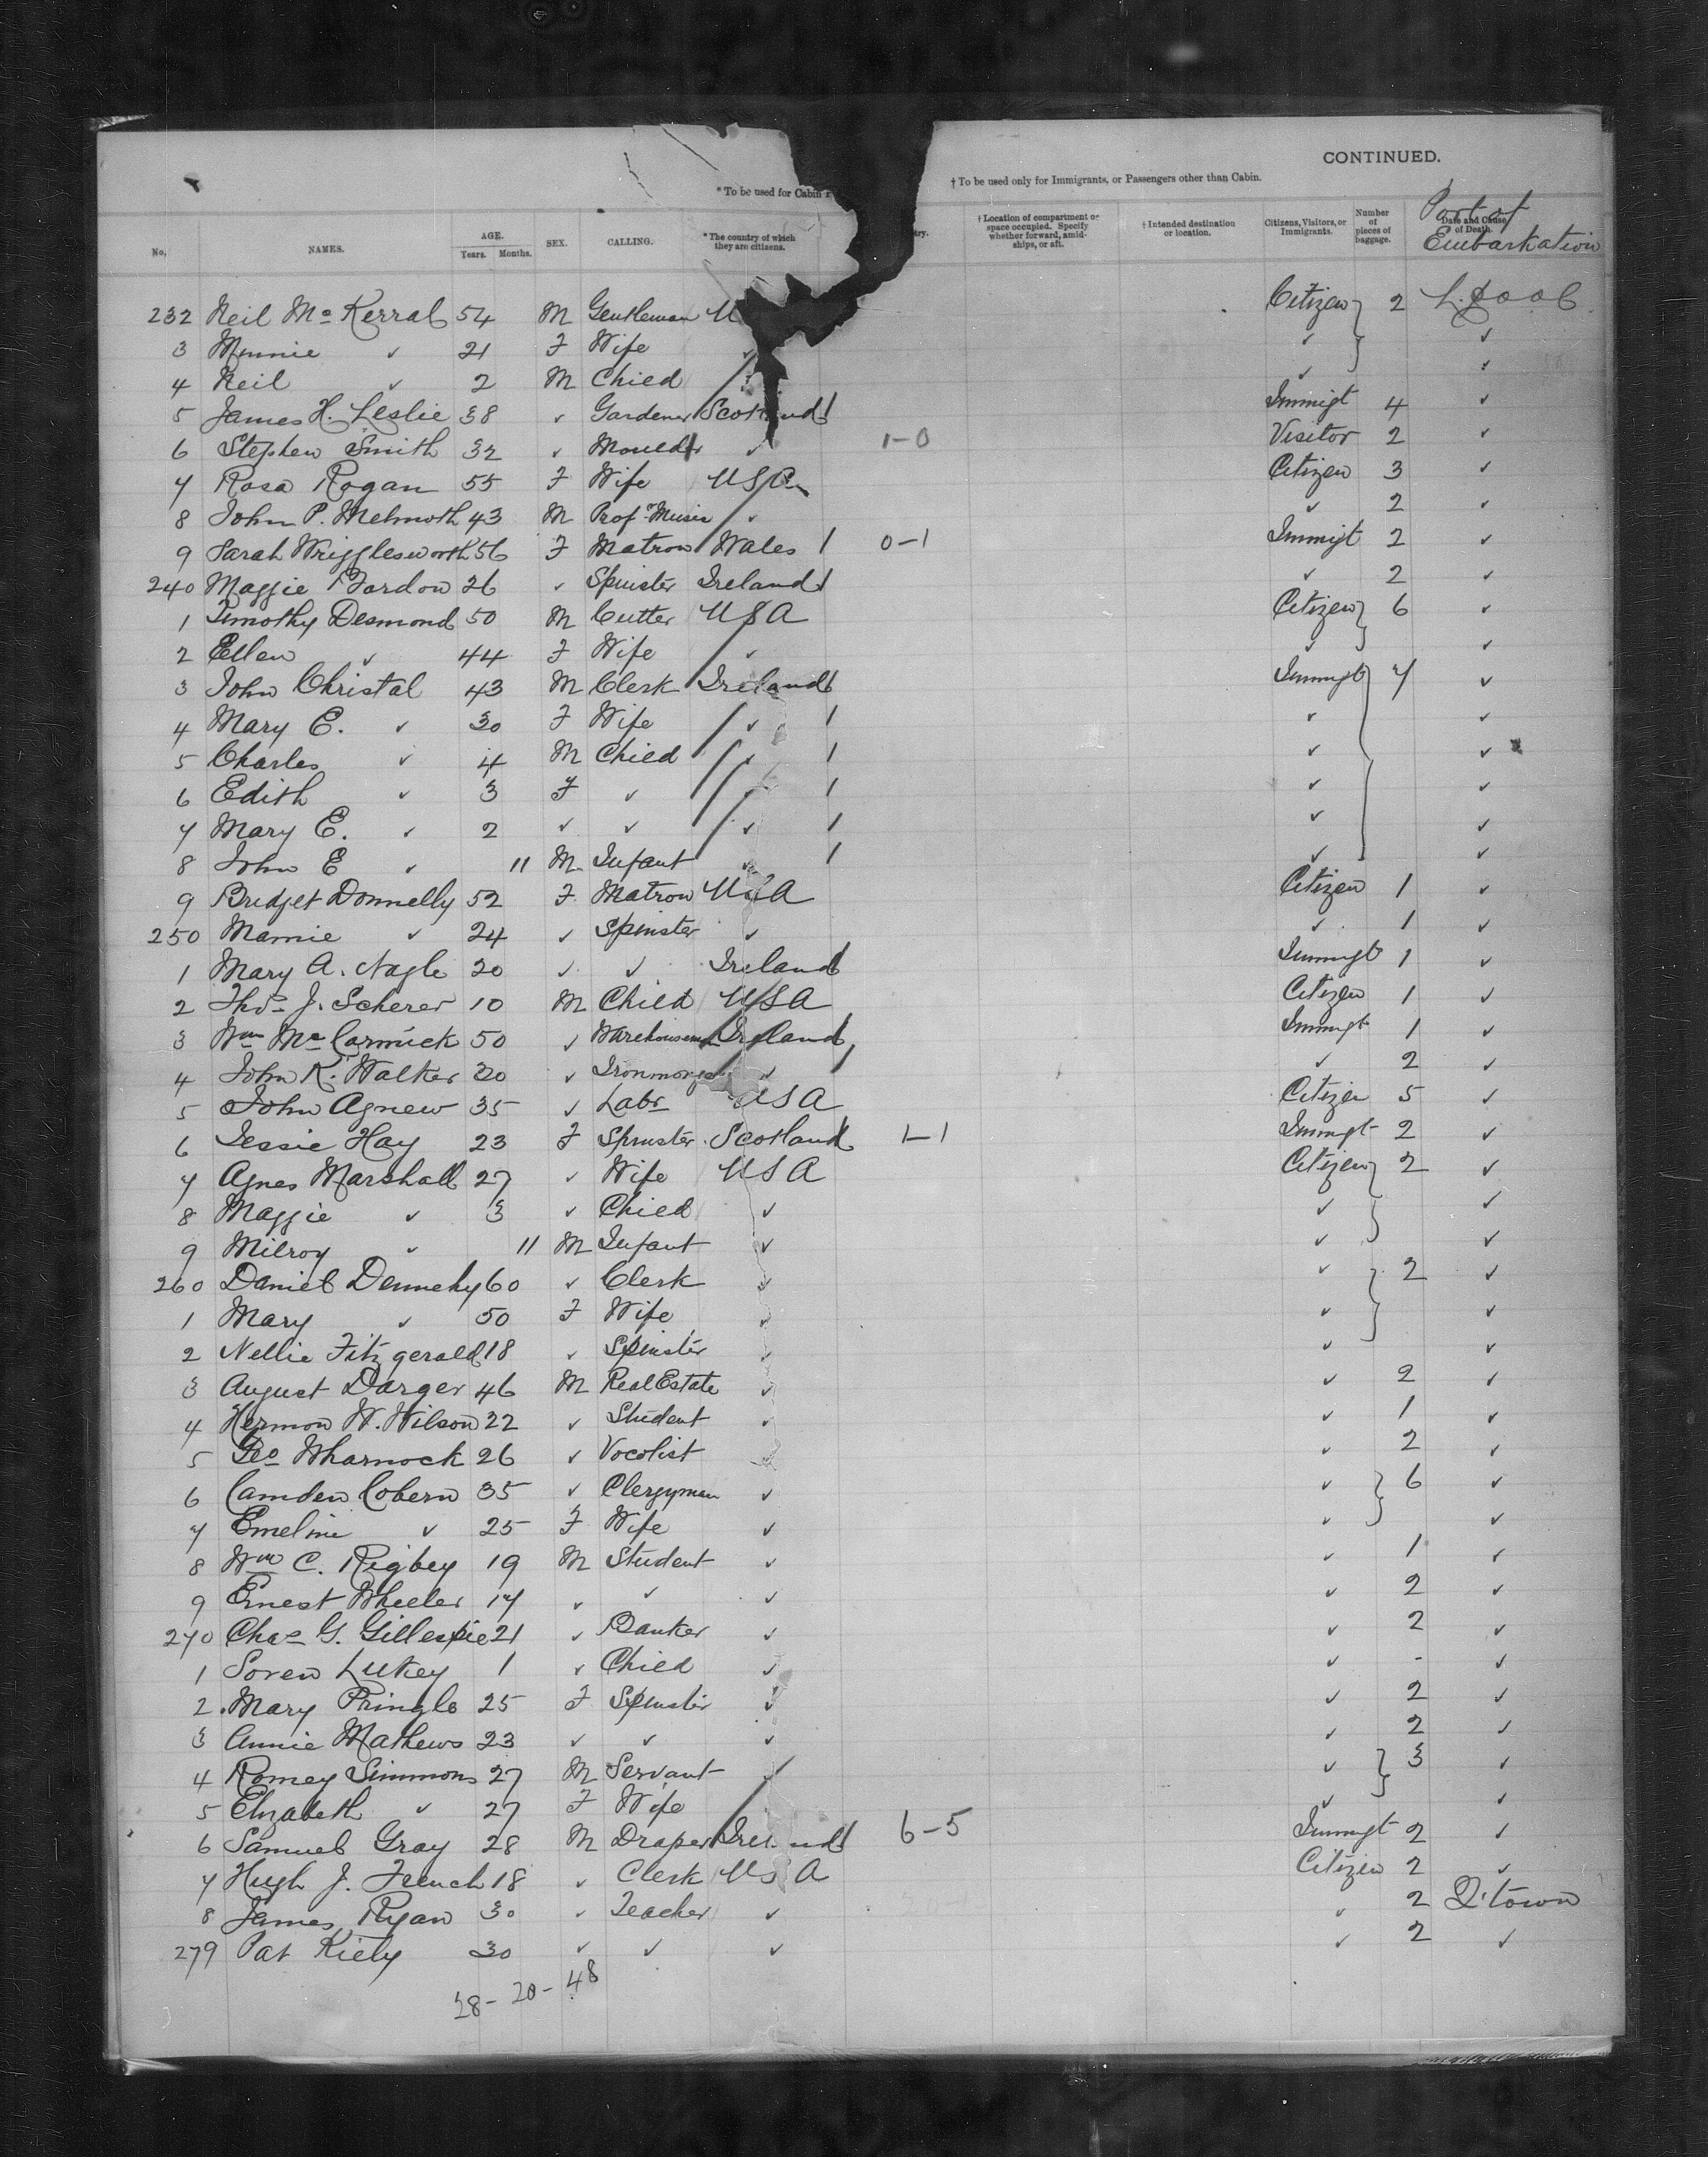 CONTINUED.
* To be used for Cabin
† To be used only for Immigrants, or Passengers other than Cabin.
No. NAMES. AGE. Years. Months. SEX. CALLING. * The country of which they are citizens. † Location of compartment or space occupied. Specify whether forward, amidships, or aft. † Intended destination or location. Citizens, Visitors, or Immigrants. Number of pieces of baggage. Date and Cause of Death. Port of Embarkation
232 Neil Mc Kerral 54 M Gentleman U Citizen } 2 L.pool
3 Minnie ✓ 21 F Wife ✓ ✓ ✓
4 Neil ✓ 2 M Child ✓ ✓
5 James H. Leslie 38 ✓ Gardener Scotland / Immigt 4 ✓
6 Stephen Smith 32 ✓ Moulder ✓ 1-0 Visitor 2 ✓
7 Rosa Rogan 55 F Wife USA Citizen 3 ✓
8 John P. Melmoth 43 M Prof. Music ✓ ✓ 2 ✓
9 Sarah Wrigglesworth 56 F Matron Wales / 0-1 Immigt 2 ✓
240 Maggie Bardon 26 ✓ Spinster Ireland / ✓ 2 ✓
1 Timothy Desmond 50 M Cutter USA Citizen } 6 ✓
2 Ellen ✓ 44 F Wife ✓ ✓ ✓
3 John Christal 43 M Clerk Ireland / Immigt } 7 ✓
4 Mary E. ✓ 30 F Wife ✓ / ✓ ✓
5 Charles ✓ 4 M Child ✓ / ✓ ✓
6 Edith ✓ 3 F ✓ ✓ / ✓ ✓
7 Mary E. ✓ 2 ✓ ✓ ✓ / ✓ ✓
8 John E ✓ 11 M Infant ✓ / ✓ ✓
9 Bridget Donnelly 52 F Matron USA Citizen 1 ✓
250 Mamie ✓ 24 ✓ Spinster ✓ ✓ 1 ✓
1 Mary A. Nagle 20 ✓ ✓ Ireland Immigt 1 ✓
2 Thos J. Scherer 10 M Child USA Citizen 1 ✓
3 Wm Mc Cormick 50 ✓ Warehouseman Ireland Immigt 1 ✓
4 John K. Walker 20 ✓ Ironmonger ✓ / ✓ 2 ✓
5 John Agnew 35 ✓ Labr USA Citizen 5 ✓
6 Jessie Hay 23 F Spinster Scotland 1-1 Immigt 2 ✓
7 Agnes Marshall 27 ✓ Wife USA Citizen } 2 ✓
8 Maggie ✓ 3 ✓ Child ✓ ✓ ✓
9 Milroy ✓ 11 M Infant ✓ ✓ ✓
260 Daniel Dennehy 60 ✓ Clerk ✓ ✓ } 2 ✓
1 Mary ✓ 50 F Wife ✓ ✓ ✓
2 Nellie Fitzgerald 18 ✓ Spinster ✓ ✓ ✓
3 August Darger 46 M Real Estate ✓ ✓ 2 ✓
4 Hermon W. Wilson 22 ✓ Student ✓ ✓ 1 ✓
5 Geo Wharnock 26 ✓ Vocolist ✓ 2 ✓
6 Camden Cobern 35 ✓ Clergyman ✓ ✓ } 6 ✓
7 Emeline ✓ 25 F Wife ✓ ✓ ✓
8 Wm C. Rigbey 19 M Student ✓ ✓ 1 ✓
9 Ernest Wheeler 17 ✓ ✓ ✓ ✓ 2 ✓
270 Chas G. Gillespie 21 ✓ Banker ✓ ✓ 2 ✓
1 Soren Lukey 1 ✓ Child ✓ ✓ - ✓
2 Mary Pringle 25 F Spinster ✓ ✓ 2 ✓
3 Annie Mathews 23 ✓ ✓ ✓ ✓ 2 ✓
4 Romey Simmons 27 M Servant ✓ ✓ } 3 ✓
5 Elizabeth ✓ 27 F Wife ✓ ✓
6 Samuel Gray 28 M Draper Ireland / 6-5 Immigt 2 ✓
7 Hugh J. French 18 ✓ Clerk USA Citizen 2 ✓
8 James Ryan 30 ✓ Teacher ✓ ✓ 2 Q'town
279 Pat Kiely 30 ✓ ✓ ✓ ✓ 2 ✓
28- 20- 48